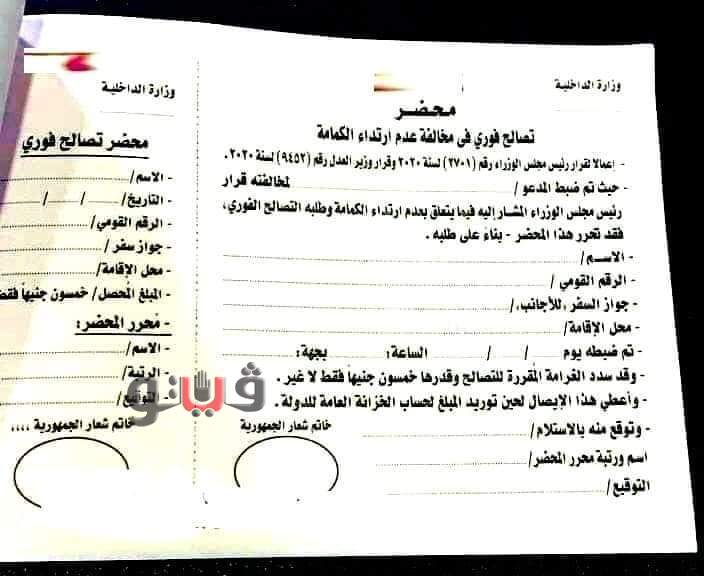 وزارة الداخلية
محضر
تصالح فوري فى مخالفة عدم ارتداء الكمامة
- إعمالا لقرار رئيس مجلس الوزراء رقم (٢٧٠١) لسنة ٢٠٢٠ وقرار وزير العدل رقم (٩٤٥٢) لسنة ٢٠٢٠.
- حيث تم ضبط المدعو / لمخالفته قرار
رئيس مجلس الوزراء المشار إليه فيما يتعلق بعدم ارتداء الكمامة وطلبه التصالح الفوري،
فقد تحرر هذا المحضر - بناءً على طلبه .
- الاسـم/
- الرقم القومي /
- جواز السفر ،للأجانب،/
- محل الإقامة/
- تم ضبطه يوم / / الساعة: بجهة:
- وقد سدد الغرامة المقررة للتصالح وقدرها خمسون جنيهاً فقط لا غير .
- وأعطي هذا الإيصال لحين توريد المبلغ لحساب الخزانة العامة للدولة .
- وتوقع منه بالاستلام/
خاتم شعار الجمهورية
اسم ورتبة محرر المحضر/
التوقيع/
وزارة الداخلية
محضر تصالح فوري
- الاسم/
- التاريخ/ / /
- الرقم القومي/
- جواز سفر /
- محل الإقامة/
- المبلغ المُحصل/ خمسون جنيهاً فقط
- مُحرر المحضر:
- الاسم/
- الرتبة/
- التوقيع/
خاتم شعار الجمهورية ،،،،
ڤيتو